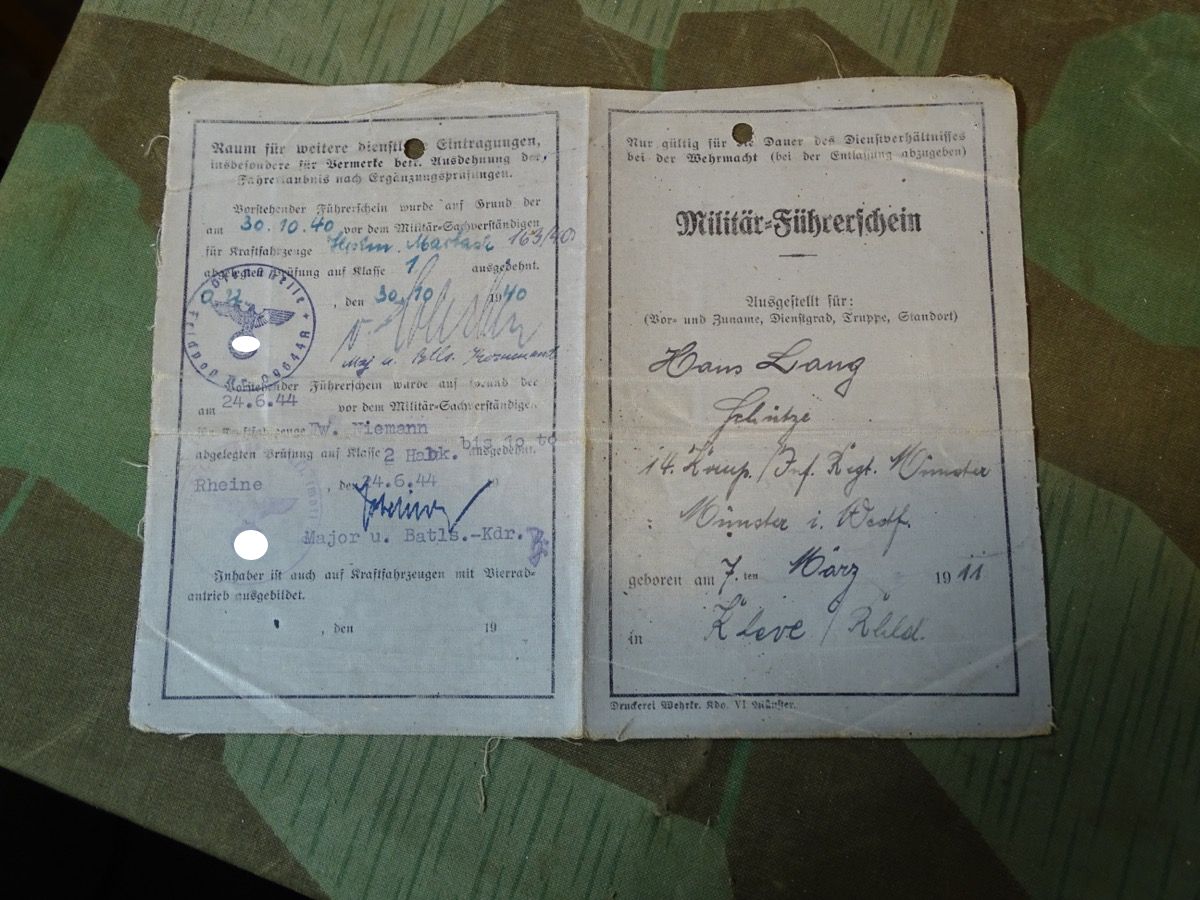 Raum für weitere dienstl Eintragungen,
insbesondere für Vermerke betr. Ausdehnung der
Fahrerlaubnis nach Ergänzungsprüfungen.
Vorstehender Führerschein wurde auf Grund der
am 30.10.40 vor dem Militär-Sachverständigen
für Kraftfahrzeuge 163/40
abgelegten Prüfung auf Klasse 1 ausgedehnt.
O.U. , den 30/10 1940
Maj u. Btls. Kommandt
Dienststelle * Feldpost
Vorstehender Führerschein wurde auf Grund der
am 24.6.44 vor dem Militär-Sachverständigen
für Kraftfahrzeuge Fw. Niemann
abgelegten Prüfung auf Klasse 2 bis 10 to ausgedehnt.
Rheine , den 24.6.44 19
Major u. Batls.-Kdr.
Inhaber ist auch auf Kraftfahrzeugen mit Vierrad-
antrieb ausgebildet.
, den 19
Nur gültig für die Dauer des Dienstverhältnisses
bei der Wehrmacht (bei der Entlassung abzugeben)
Militär-Führerschein
Ausgestellt für:
(Vor- und Zuname, Dienstgrad, Truppe, Standort)
Hans Lang
Schütze
14. Komp./Inf. Regt. Münster
Münster i. Westf.
geboren am 7. ten März 1911
in Kleve / Rhld.
Druckerei Wehrkr. Kdo. VI Münster.